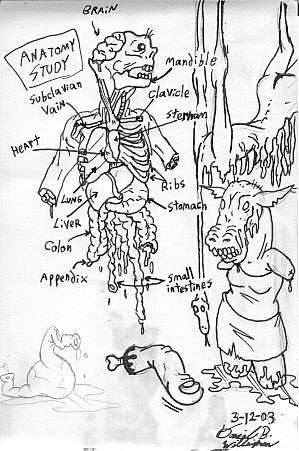 BRAIN
ANATOMY
STUDY
Mandible
Subclavian
Vain
Clavicle
Sternam
HEART
Ribs
LUNG
Stomach
Liver
Colon
Appendix
Small
intestines
3-12-03